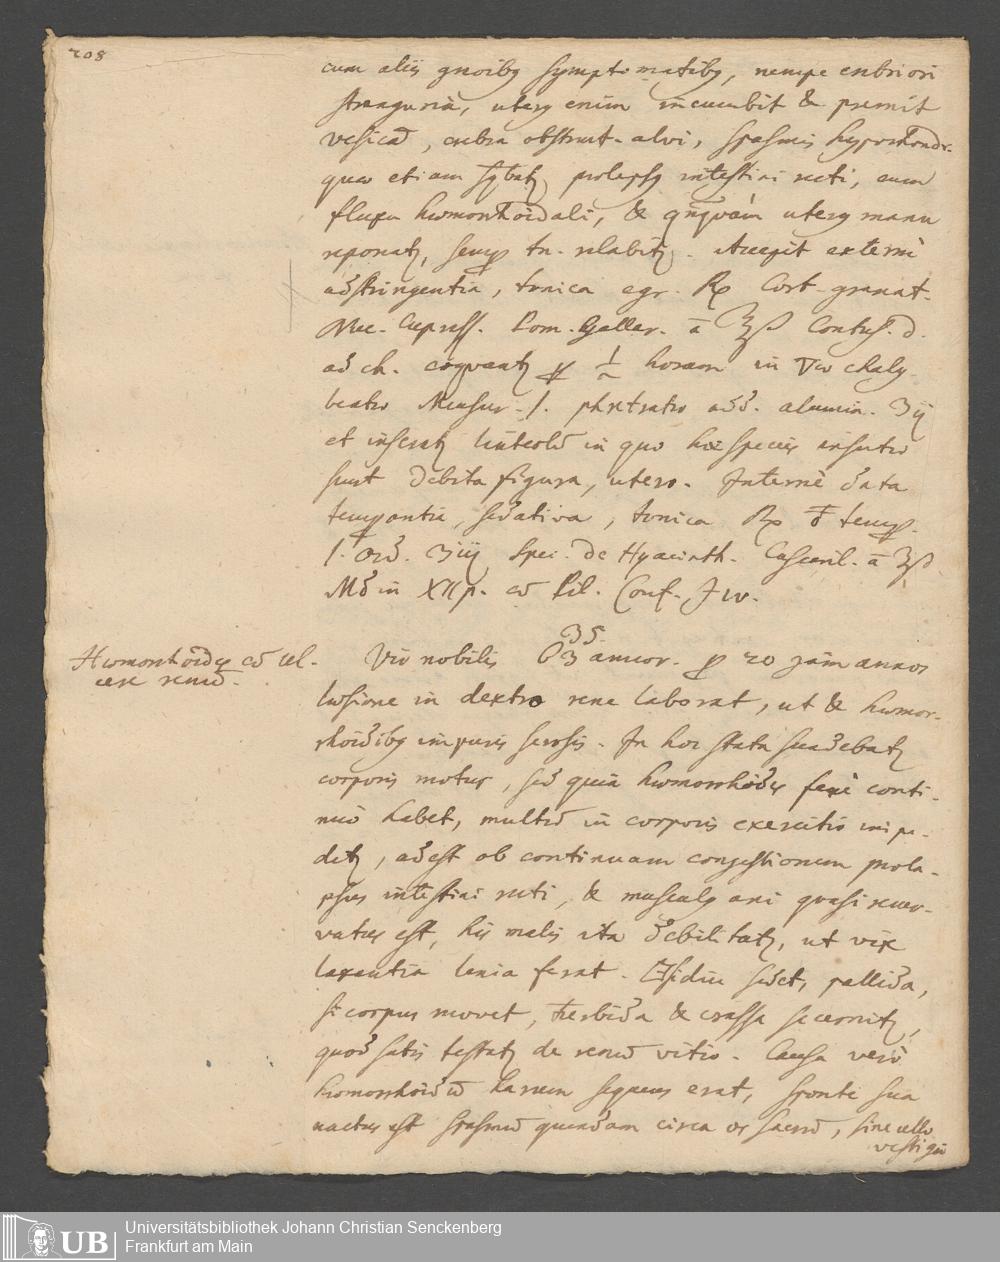 208
cum aliis gravibq symptomatibq, nempe crebriori
stranguria, uterq enim incumbit & premit
vesicam, crebra obstruct. alvi, spasmis hypochondr.
quos etiam prolapsq intestini recti, cum
fluxu haemorrhoidali, & quamquam uterq manu
reponatr, semp tn. relabitr. Accepit externè
adstringentia, tonica egr. Rp Cort. granat.
Nuc. Cupress. Pom. Gallar. ā ℥ß Contus. d.
ad ch. coquantr p ½ horam in ▽ chaly
beatae Mensur. 1. philtratae add. alumin. ʒij
et inseratr linteolum in quo hae species insutae
sunt debita figura, utero. Internè data
temperantia, sedativa, tonica Rp temp.
Spec. de Hyacinth. Cascaril. ā ʒß
Md in XII p. cum Pil. Conf. J w.
35.
Haemorrhoides cum ul-
cere renum.
Vir nobilis 63 annor. p 20 jam annos
laesione in dextro rene laborat, ut & haemor-
rhoidibq impuris serosis. In hoc statu suadebatr
corporis motus, sed quia haemorrhoides ferè conti-
nuò habet, multum in corporis exercitio impe-
ditr, adest ob continuam congestionem prola-
psus intestini recti, & musculq ani quasi rener-
vatus est, his malis ita debilitatr, ut vix
laxantia lenia ferat. si diu sedet, pallida,
si corpus movet, turbida & crassa secernitr,
quod satis testatr de renum vitio. Causa verò
haemorrhoidum harum sequens erat, sponte sua
nactus est spasmum quendam circa os sacrum, sine ullo
vestigio
Universitätsbibliothek Johann Christian Senckenberg
Frankfurt am Main
UB